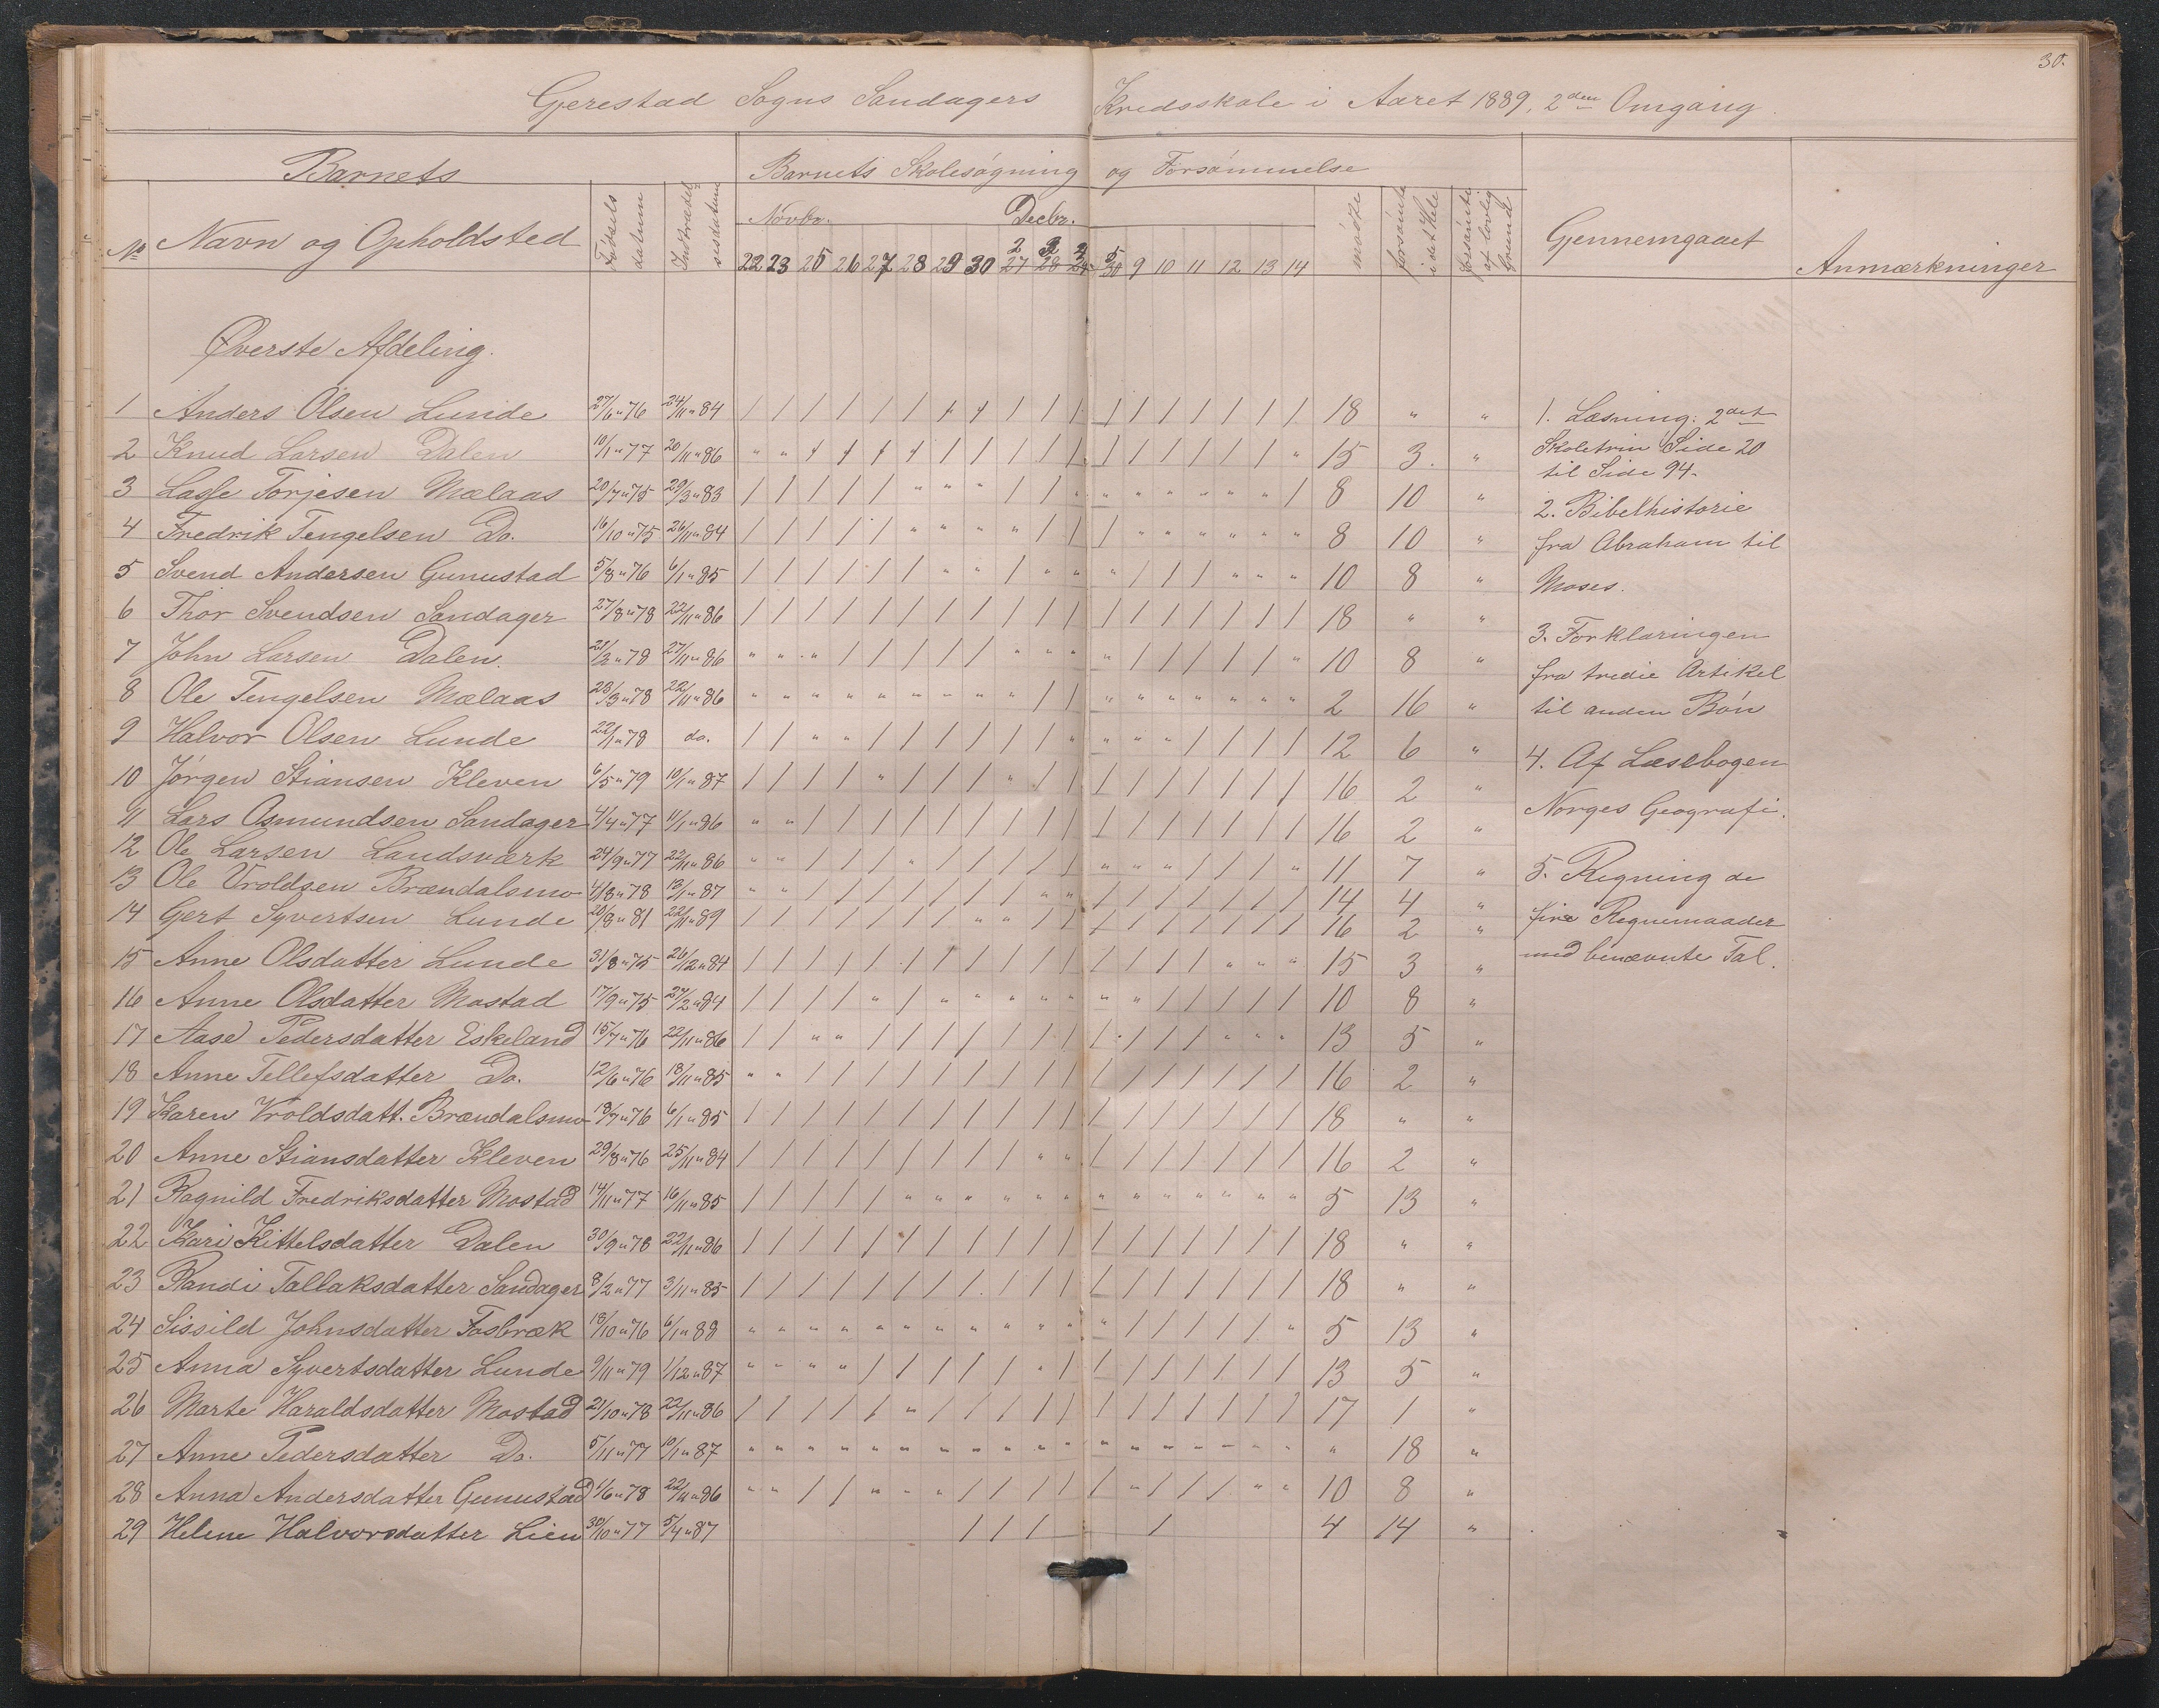 30.
Gjerestad Sogns Sandagers Kredsskole i Aaret 1889, 2den Omgang.
Barnets
Barnets Skolesøgning og Forsømmelse
No Navn og Opholdsted Fødsels datum Indtrædelsesdatum Novbr. Decbr. mødte forsømte i det Hele forsømte af lovlig Grund Gjennemgaaet Anmærkninger
22 23 25 26 27 28 29 30 2 3 9 10 11 12 13 14
Øverste Afdeling.
1 Anders Olsen Lunde 27/6 " 76 24/11 " 84 / / / / / / / / / / / / / / / / / / 18 " "
2 Knud Larsen Dalen 10/1 " 77 20/11 " 86 " " / / / / / / / / / / / / / / / " 15 3. "
3 Lasse Torjesen Mælaas 20/7 " 75 29/3 " 83 / / / / / " " " / / " " " " " " " / 8 10 "
4 Fredrik Tengelsen Do. 16/10 " 75 26/11 " 84 / / / / / " " " " / / / " " " " " " 8 10 "
5 Svend Andersen Gunustad 5/8 " 76 6/1 " 85 / / / / / / " " / " " " / / / " " " 10 8 "
6 Thor Svendsen Sandager 27/8 " 78 22/11 " 86 / / / / / / / / / / / / / / / / / / 18 " "
7 John Larsen Dalen. 21/2 " 78 27/11 " 86 " " " / / / / / " " " " / / / / / " 10 8 "
8 Ole Tengelsen Mælaas 23/3 " 78 22/11 " 86 " " " " " " " " " / / " " " " " " " 2 16 "
9 Halvor Olsen Lunde 22/1 " 78 do. / / " " / / / / / / " " " " / / / / 12 6 "
10 Jørgen Stiansen Kleven 6/5 " 79 10/1 " 87 / / / / " / / / " / / / / / / / / / 16 2 "
11 Lars Asmundsen Sandager 4/4 " 77 11/1 " 86 " " / / / / / / / / / / / / / / / / 16 2 "
12 Ole Larsen Landsværk 24/9 " 77 22/11 " 86 " " / / / " / / / / / " " " / / / " 11 7 "
13 Ole Vroldsen Brændalsmo 4/8 " 78 13/1 " 87 " " / / / / / / / " " / / / / / / / 14 4 "
14 Gert Syvertsen Lunde 20/8 " 81 22/11 " 89 / / / / / / / " " / / / / / / / / / 16 2 "
15 Anne Olsdatter Lunde 31/8 " 75 26/12 " 84 / / / / / / / / / / / / / / / " " " 15 3 "
16 Anne Olsdatter Mostad 17/9 " 75 27/2 " 84 / / / / " / " " " " " " " / / / / / 10 8 "
17 Aase Pedersdatter Eskeland 15/7 " 76 22/11 " 86 / / " " / / / / / / / / / / / " " " 13 5 "
18 Anne Tellefsdatter Do. 12/6 " 76 18/11 " 85 " " / / / / / / / / / / / / / / / / 16 2 "
19 Karen Vroldsdatt. Brændalsmo 18/7 " 76 6/1 " 85 / / / / / / / / / / / / / / / / / / 18 " "
20 Anne Stiansdatter Kleven 29/8 " 76 25/11 " 84 / / / / / / / / / " " / / / / / / / 16 2 "
21 Ragnild Fredriksdatter Mostad 14/11 " 77 16/11 " 85 / / / / / " " " " " " " " " " " " " 5 13 "
22 Kari Kittelsdatter Dalen 30/9 " 78 22/11 " 86 / / / / / / / / / / / / / / / / / / 18 " "
23 Randi Tallaksdatter Sandager 8/2 " 77 3/11 " 85 / / / / / / / / / / / / / / / / / / 18 " "
24 Sissild Johnsdatter Fosbræk 18/10 " 76 6/1 " 88 " " " " " " " " " " " " / / / / / " 5 13 "
25 Anna Syvertsdatter Lunde 9/11 " 79 1/12 " 87 " " " " / / / / / " / / / / / / / / 13 5 "
26 Marte Haraldsdatter Mostad 21/10 " 78 22/11 " 86 / / / / / " / / / / / / / / / / / / 17 1 "
27 Anne Pedersdatter Do. 5/11 " 77 10/1 " 87 " " " " " " " " " " " " " " " " " " " 18 "
28 Anna Andersdatter Gunustad 1/6 " 78 22/11 " 86 " " / / " " " / / / / / " / / / " " 10 8 "
29 Helene Halvorsdatter Lien 30/10 " 77 5/4 " 87 / / / / 4 14 "
1. Læsning: 2det
Skoletrin Side 20
til Side 94.
2. Bibelhistorie
fra Abraham til
Moses.
3. Forklaringen
fra tredie Artikel
til anden Bøn
4. Af Læsebogen
Norges Geografi.
5. Regning de
fire Regnemaader
med benævnte Tal.